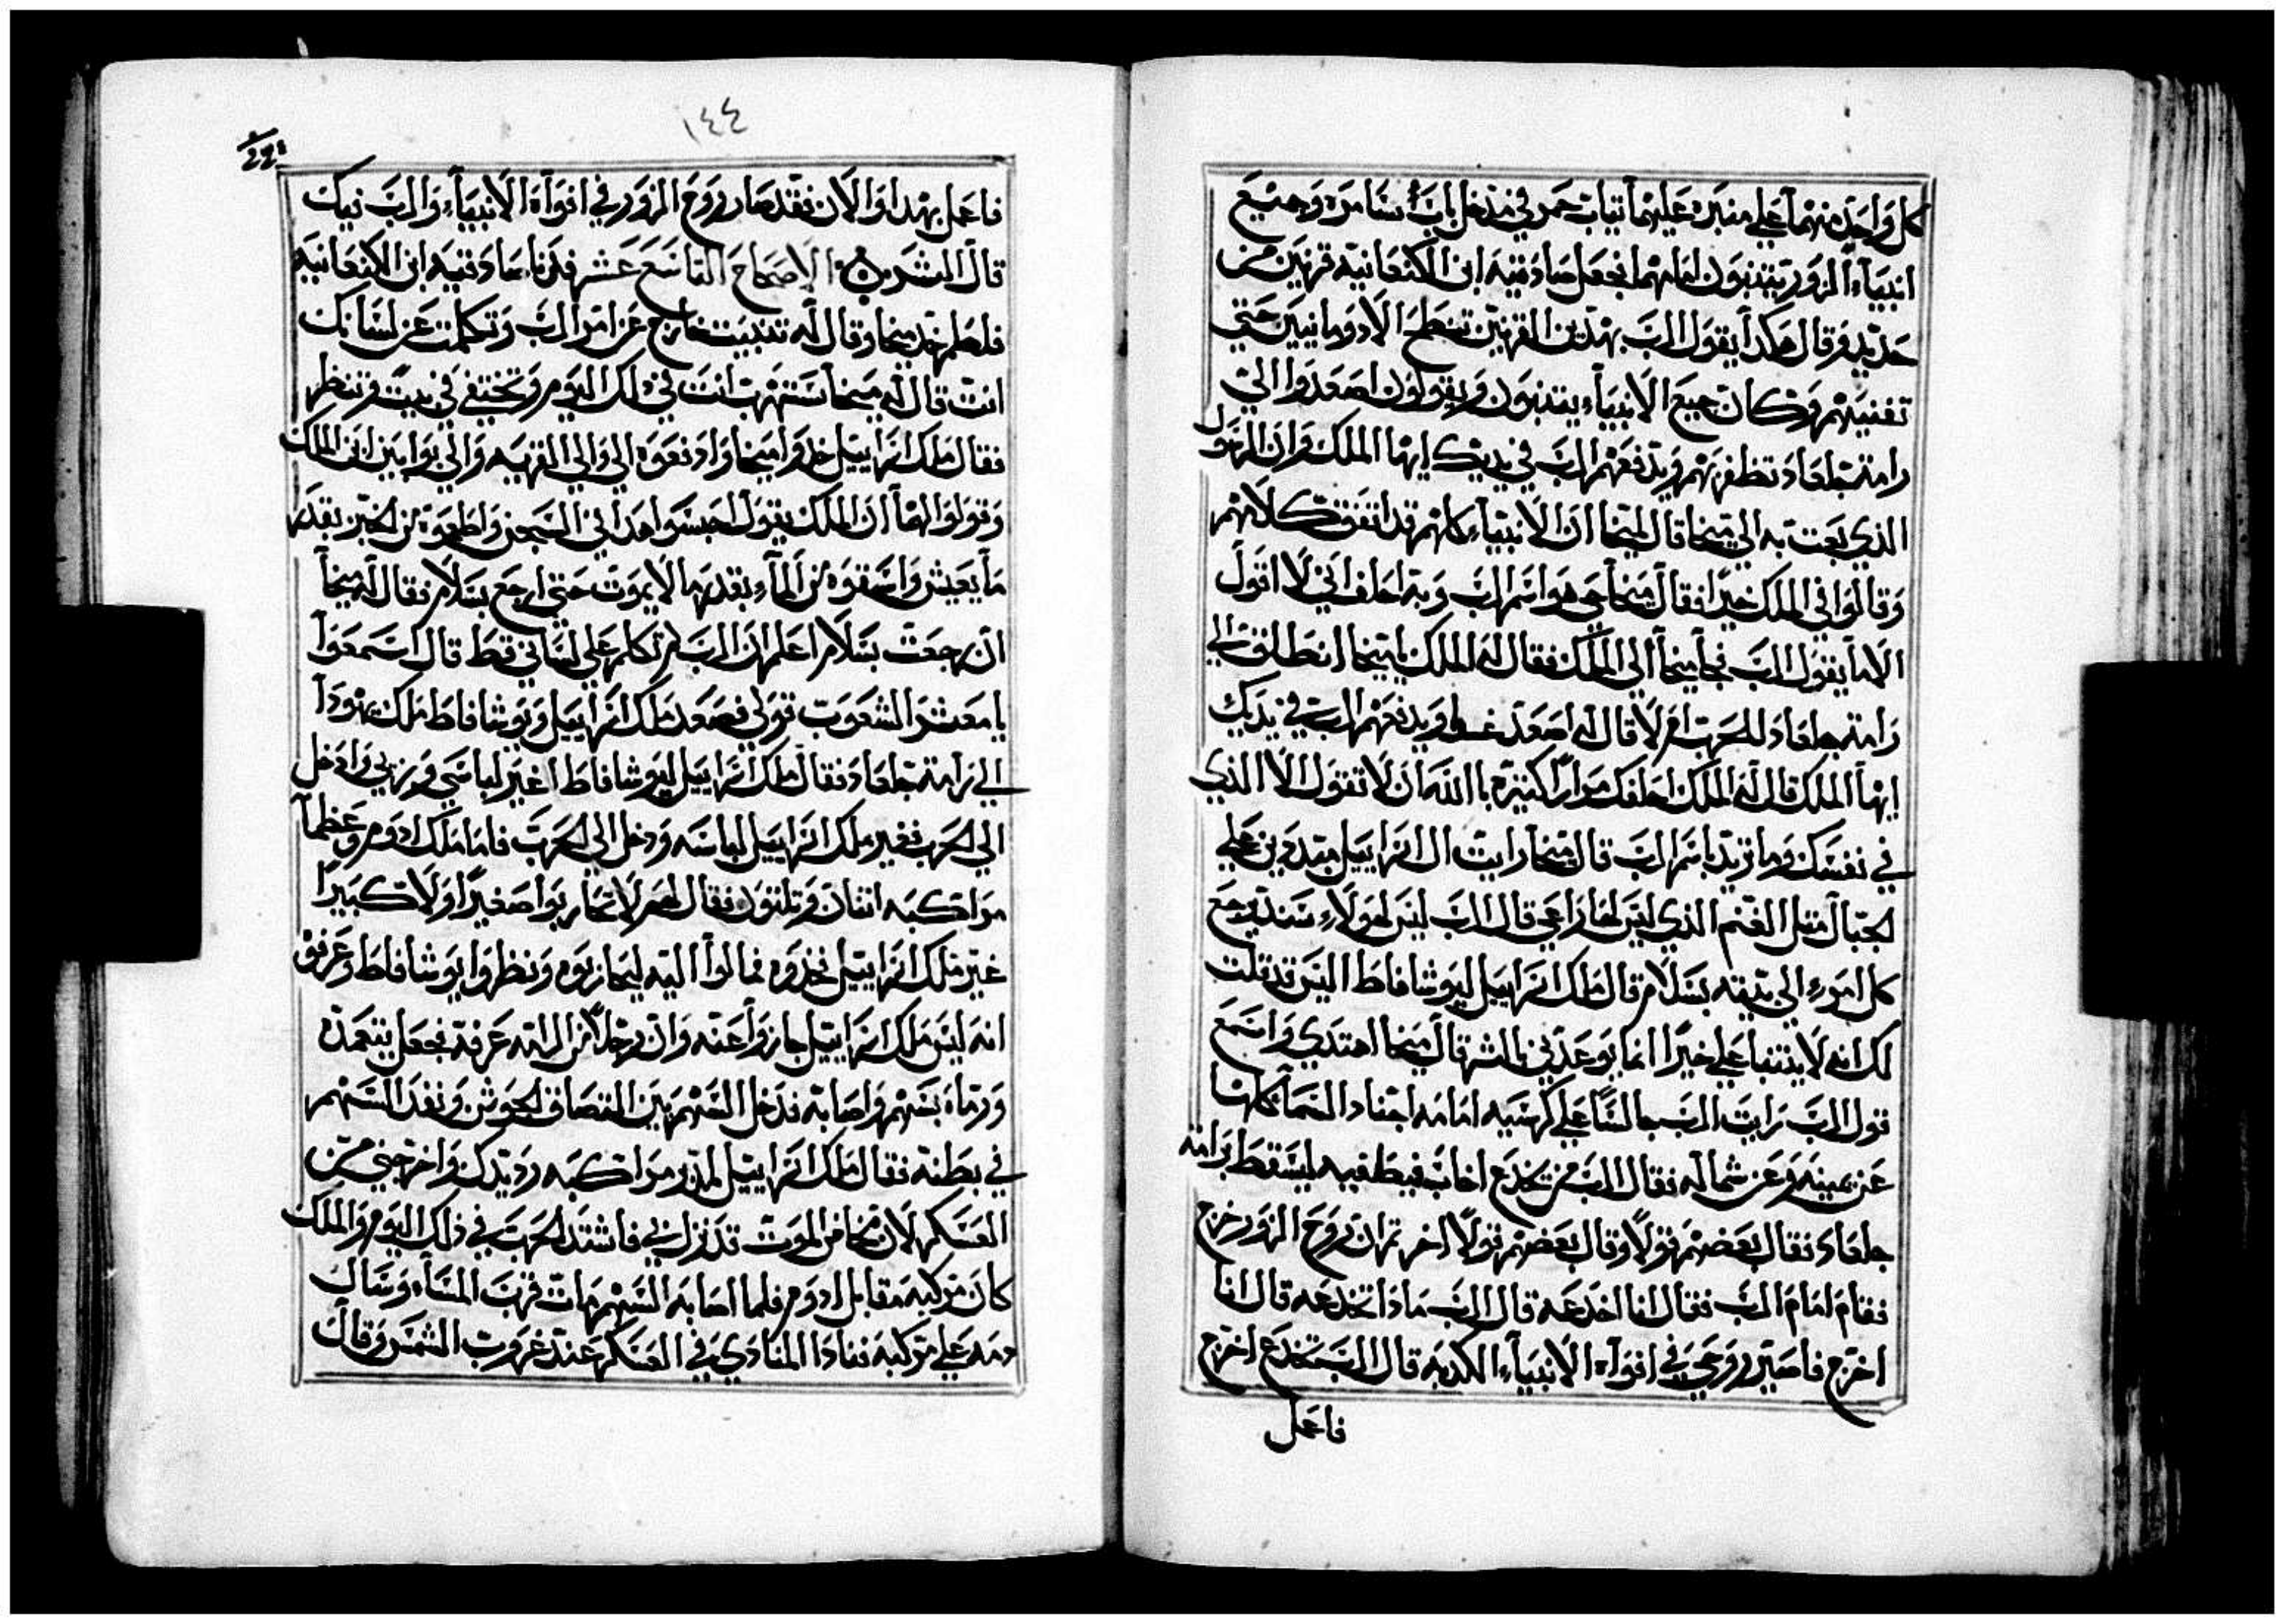 كل واحد منهما علي منبره عليهما تياب حمر في مدخل باب سامره وجميع
انبياء الزور يتنبون امامهما فجعل صادقيه ابن الكنعانية قرنين من
حديد وقال هكدا يقول الرب بهدين القرنين تنطح الادومانيين حتي
تفنيهم وكان جميع الانبياء يتنبون ويقولون اصعدوا الي
رامة جلعاد تظفر بهم ويدفعهم الرب في يديك ايها الملك وان الرسول
الذي بعت به الي ميخا قال لميخا ان الانبياء كلهم قد اتفقت كلامهم
وقالوا في الملك خيرا فقال ميخا حي هو اسم الرب وبه احلف اني لا اقول
الا ما يقول الرب فجا ميخا الي الملك فقال له الملك ياميخا انطلق الي
رامة جلعاد للحرب ام لا قال له اصعد ويدفعهم الرب في يديك
ايها الملك قال له الملك احلفك مرارا كتيرة باالله ان لا تقول الا الذي
في نفسك وما تريد باسم الرب قال ميخا رايت ال اسراييل متبددين علي
الجبال متل الغنم الذي ليس لها راعي قال الرب ليس لهولاء سيد يرجع
كل امرء الي بيته بسلام قال ملك اسراييل ليوشافاط اليس قد قلت
لك انه لا يتنبا علي خيرا انما يوعدني بالشر قال ميخا اهتدي واسمع
قول الرب رايت الرب جالسا علي كرسيه امامه اجناد السما كلها
عن يمينه وعن شماله فقال الرب من يخدع اخاب فيطغيه ليسقط برامة
جلعاد فقال بعضهم قولا وقال بعضهم قولا اخر تم ان روح الزور خرج
فقام امام الرب فقال انا اخدعه قال الرب مادا تخدعه قال انا
اخرج فاصير روحي في افواه الانبياء الكدبه قال الرب تخدع اخرج
فاعمل
١٤٤
فاعمل بهدا والان فقد صار روح الزور في افواه الانبياء والرب فيك
قال الشر الاصحاح التاسع عشر فدنا صادقيه ابن الكنعانيه
فلطم خد ميخا وقال له تنبيت خارج عن امر الرب وتكلمت عن لسانك
انت قال له ميخا ستهرب انت في دلك اليوم وتختفي في بيت وتنظر
فقال ملك اسراييل خدوا ميخا وادفعوه الي والي القريه والي يوا مين ابن الملك
وقولوا لهما ان الملك يقول احبسوا هدا في السجن واطعموه من الخبز بقدر
ما يعيش واسقوه من الماء بقدر ما لا يموت حتي ارجع بسلام فقال له ميخا
ان رجعت بسلام اعلم ان الرب لم تكلم علي لساني قط قال اسمعوا
يا معشر الشعوب قولي فصعد ملك اسراييل ويوشافاط ملك يهودا
الي رامة جلعاد فقال ملك اسراييل ليوشافاط اغير لباسي وزيي وادخل
الي الحرب فغير ملك اسراييل لباسه ودخل الي الحرب فاما ملك ادوم وعظما
مراكبه اتنان وتلتون فقال لهم لا تحاربوا صغيرا ولا كبيرا
غير ملك اسراييل فخدوه فمالوا اليه ليحاربوه ونظروا يوشافاط وعرفو
انه ليس ملك اسراييل جازوا عنه وان رجلا من الرماه عرفه فجعل يتعمده
ورماه بسهم واصابه فدخل السهم بين التصاق الجوشن ونفد السهم
في بطنه فقال ملك اسراييل لمدبر مراكبه رد يدك واخرجني من
العسكر لان مخاض الموت قد نزل بي فاشتد الحرب في ذلك اليوم والملك
كان مركبه مقابل ادوم فلما اصابه السهم مات قرب المساء وسال
دمه علي مركبه فنادا المنادي في العسكر عند غروب الشمس وقال